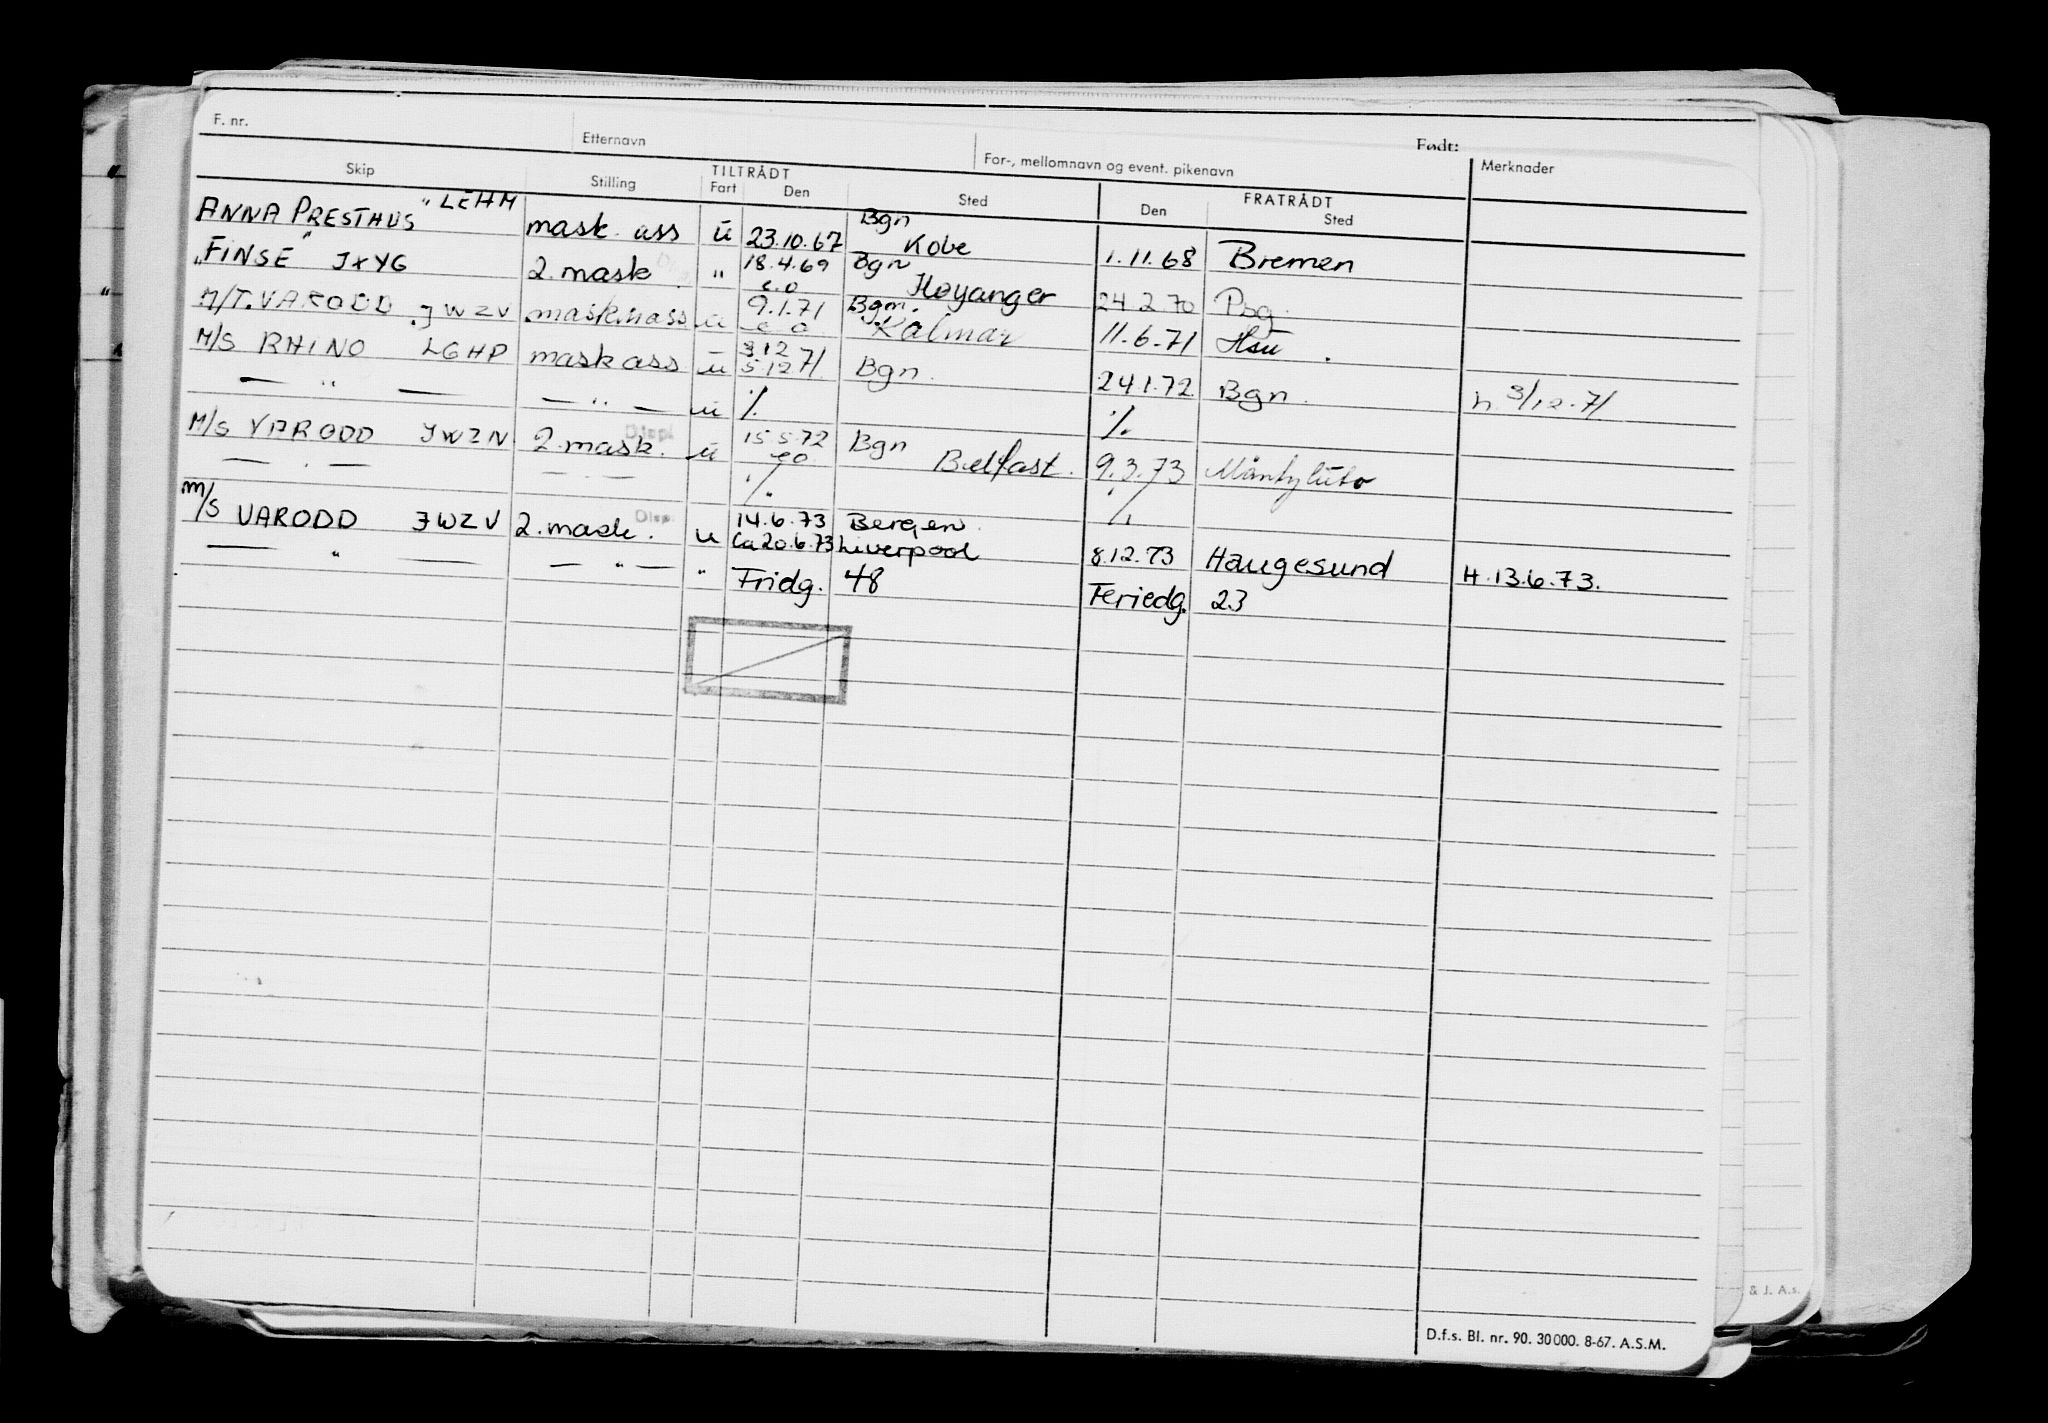 F. nr. Etternavn For-, mellomnavn og event. pikenavn Født: Merknader
Skip Stilling TILTRÅDT Fart Den Sted FRATRÅDT Den Sted
"ANNA PRESTHUS" LEHM mask. ass ū 23.10.67 Bgn Kobe 1.11.68 Bremen
"FINSE" JXYG 2. mask Disp. " 18.4.69 e.o Bgn Høyanger 24.2.70 Psg.
M/T. VARODD JWZV mask.ass u 9.1.71 e o Bgn. Kalmar 11.6.71 Hsu.
M/S RHINO LGHP mask ass ū 3.12 5.12 71. Bgn. 24.1.72 Bgn. h 3/12-71
— " — — " — ū % %
M/S VARODD JWZN 2. mask. Displ ū 15.5.72 eo Bgn Belfast. 9.3.73 Mäntyluto
— . — — — % %
M/S VARODD JWZV 2. mask. Disp. u 14.6.73 Bergen.
Ca 20.6.73 Liverpool 8.12.73 Haugesund H. 13.6.73.
— " — — " — " Fridg. 48 Feriedg. 23
& J. A.s.
D.f.s. Bl. nr. 90. 30 000. 8-67. A.S.M.